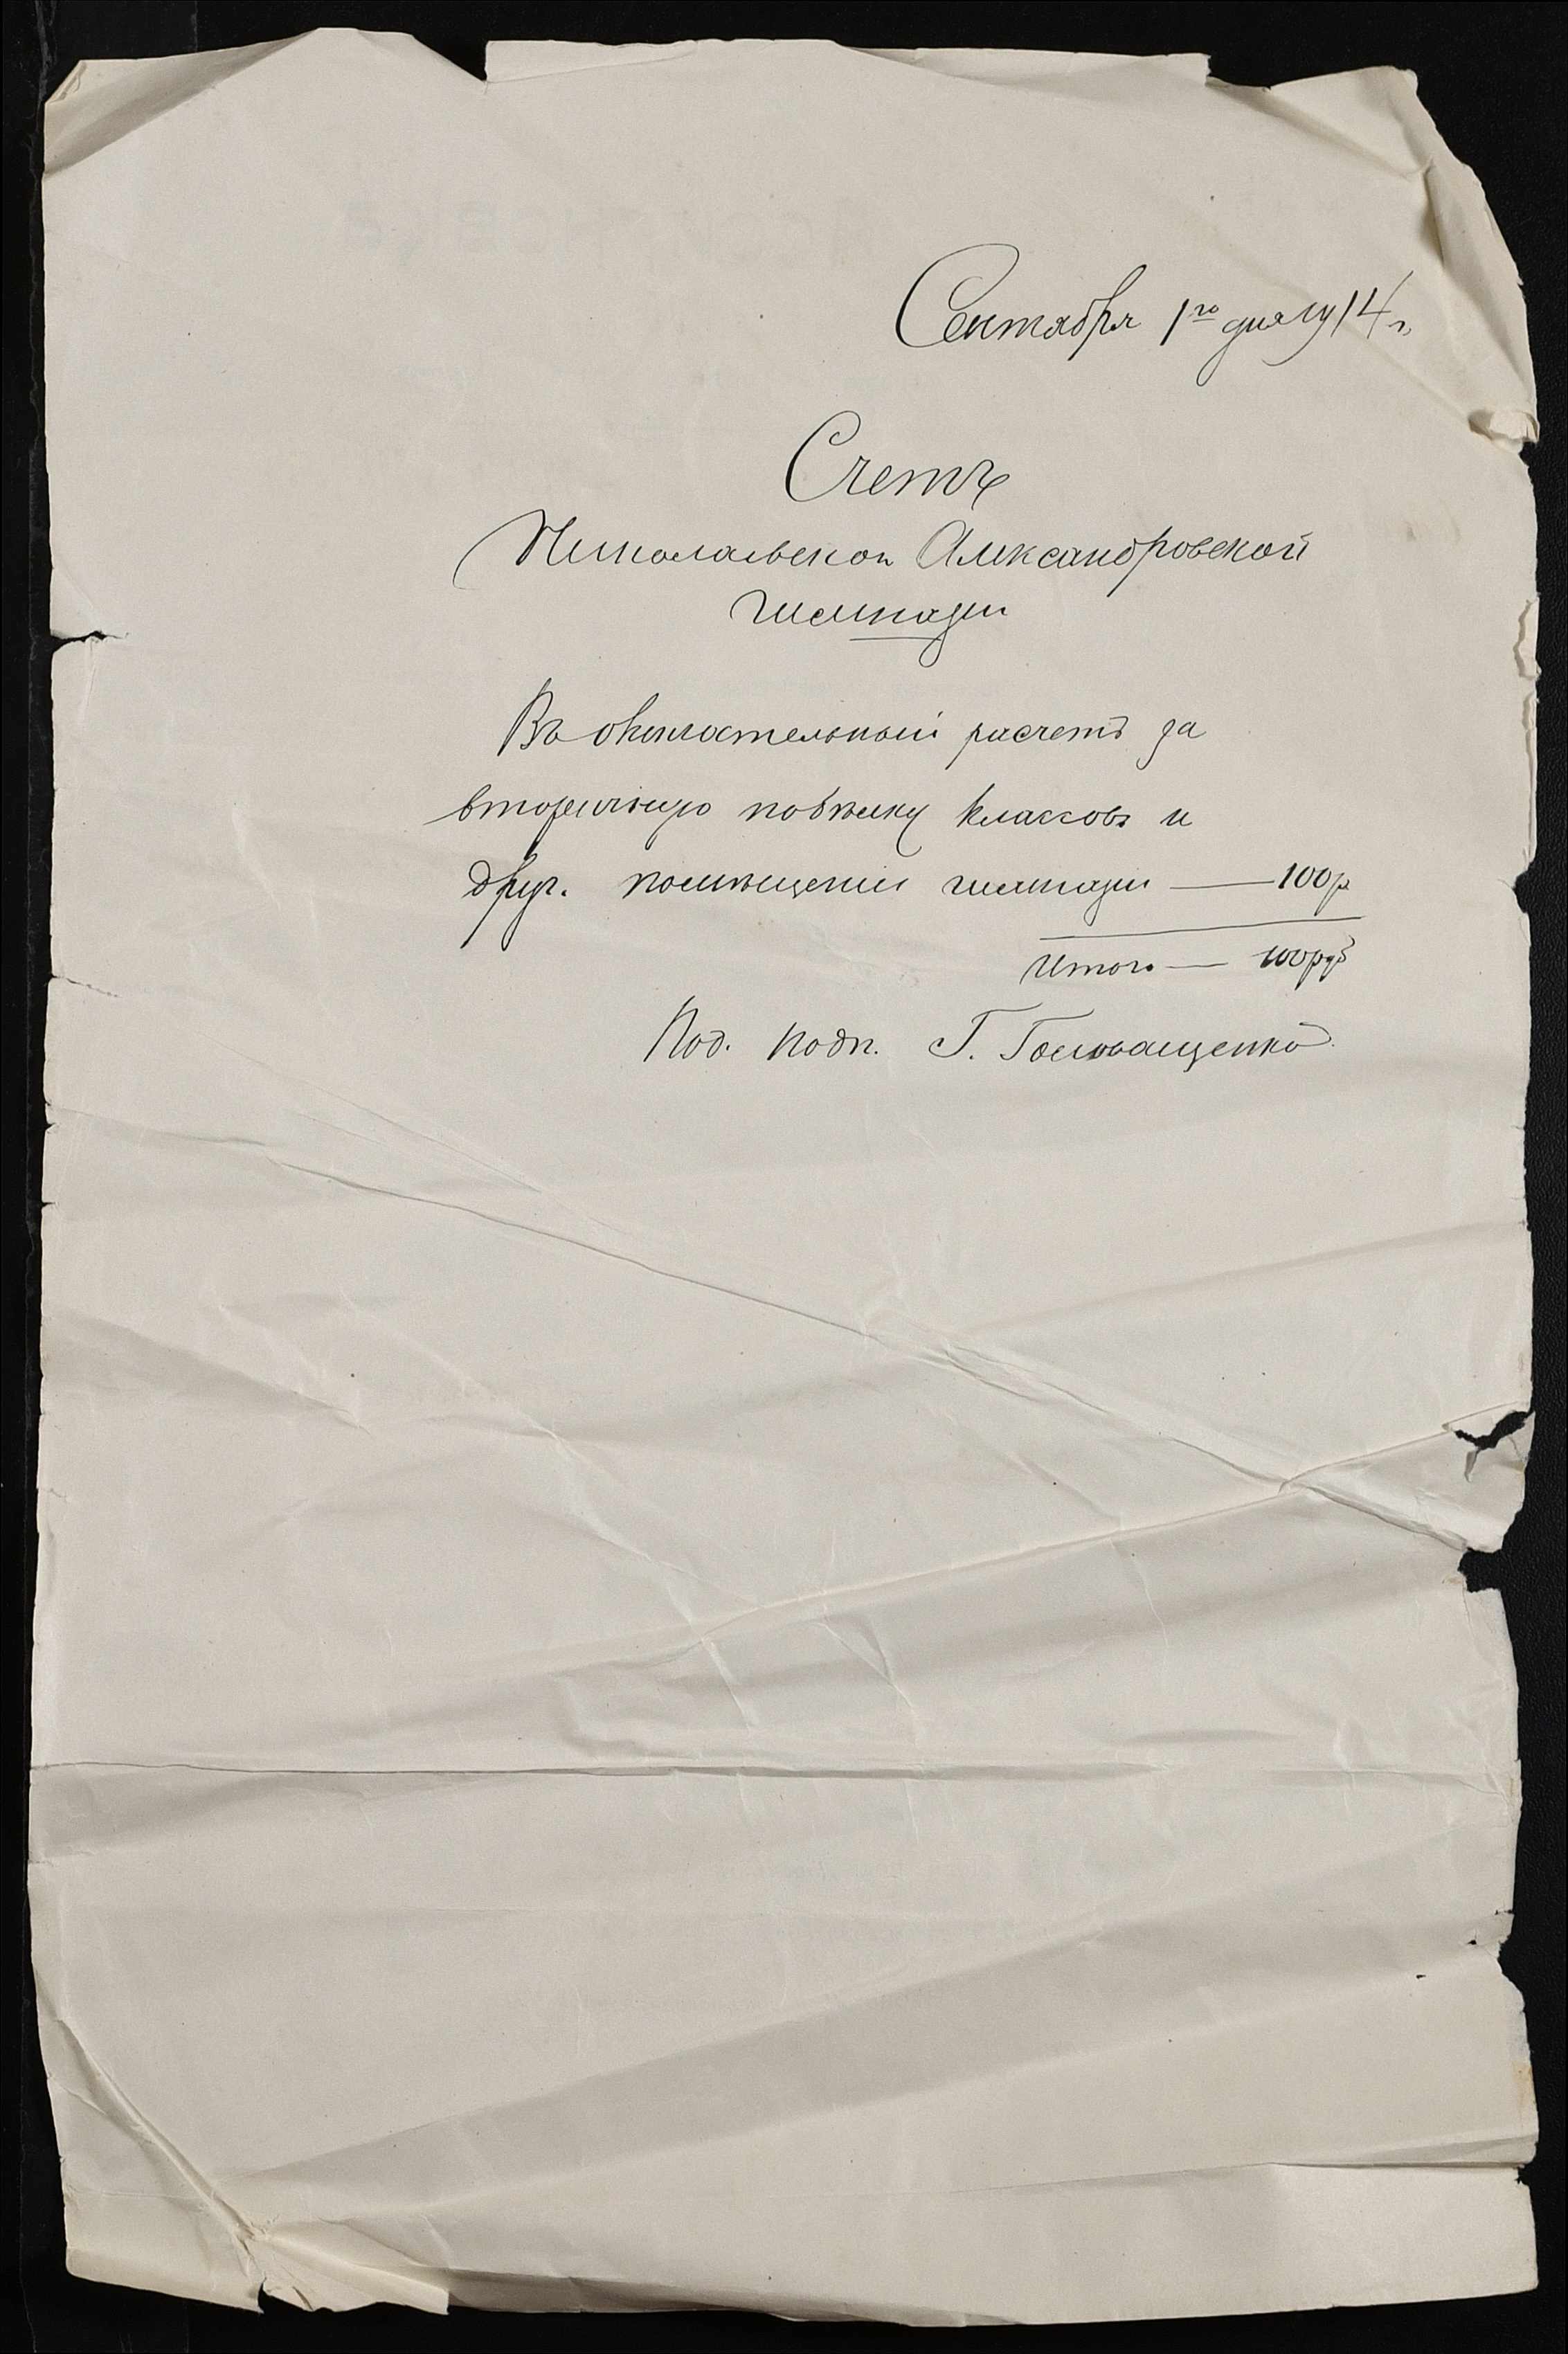 Сентября 1го дня 1914 г.
Счетъ
Николаевской Александровской
гимназіи
Въ окончательный расчетъ за
вторичную побѣлку классовъ и
друг. помѣщеній гимназіи — 100р
Итого — 100руб
Под. подп. Г.